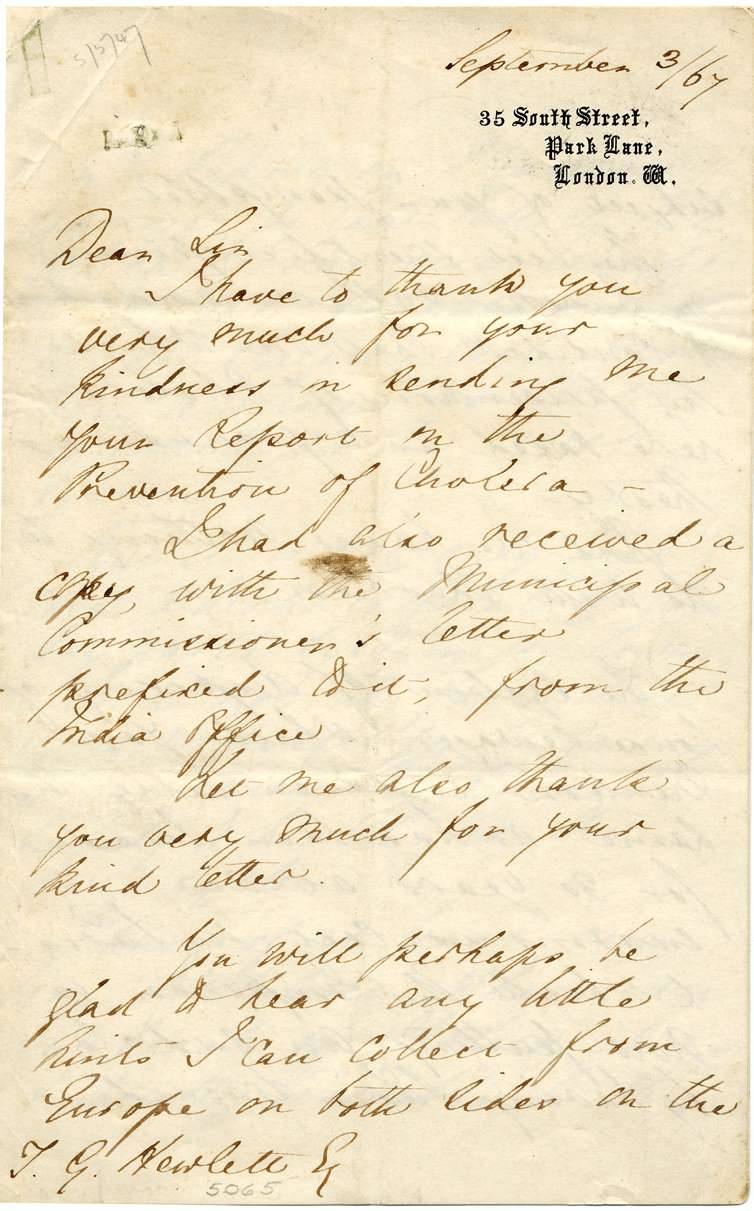 5/3/47
September 3/67
35 South Street,
Park Lane,
London. W.
Dear Sir
I have to thank you
very much for your
kindness in sending me
your Report on the
Prevention of Cholera –
I had also received a
copy, with the Municipal
Commissioner's letter
prefixed to it, from the
India Office
Let me also thank
you very much for your
kind letter.
You will perhaps be
glad to hear any little
hints I can collect from
Europe on both sides on the
T. G. Hewlett Esq
5065